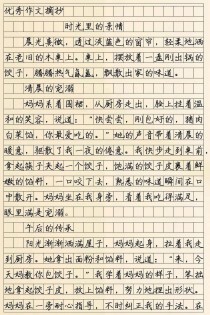 优秀作文摘抄
时光里的亲情
晨光熹微，透过淡蓝色的窗帘，轻柔地洒
在老旧的木桌上。桌上，摆放着一盘刚出锅的
饺子，腾腾热气氤氲，飘散出家的味道。
清晨的宠溺
妈妈系着围裙，从厨房走出，脸上挂着温
和的笑容，说道：“快尝尝，刚包好的，猪肉
白菜馅，你最爱吃的。”她的声音带着清晨的
暖意，驱散了我一夜的倦意。我快步走到桌前，
拿起筷子夹起一个饺子，饱满的饺子皮裹着鲜
嫩的馅料，一口咬下去，熟悉的味道瞬间在口
中散开。妈妈坐在我身旁，看着我吃得满足，
眼里满是宠溺。
午后的传承
阳光渐渐洒满屋子，妈妈起身，拉着我走
到厨房。她拿出面粉和馅料，说道：“来，今
天妈教你包饺子。”我学着妈妈的样子，笨拙
地拿起饺子皮，放上馅料，努力地捏出形状。
妈妈在一旁耐心指导，不时纠正我的手法。在